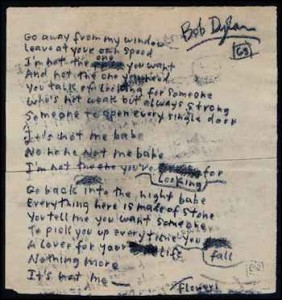 Bob Dylan
Go away from my window
Leave at your own speed
I'm not the one you want
And not the one you need
You talk of looking for someone
Who's not weak but always strong
Someone to open every single door
It's not me babe
No no no Not me babe
I'm not the one you're for
Looking
Go back into the night babe
Everything here is made of stone
You tell me you want someone
To pick you up everytime you
A lover for your life fall
Nothing more
It's not me —
Flowers